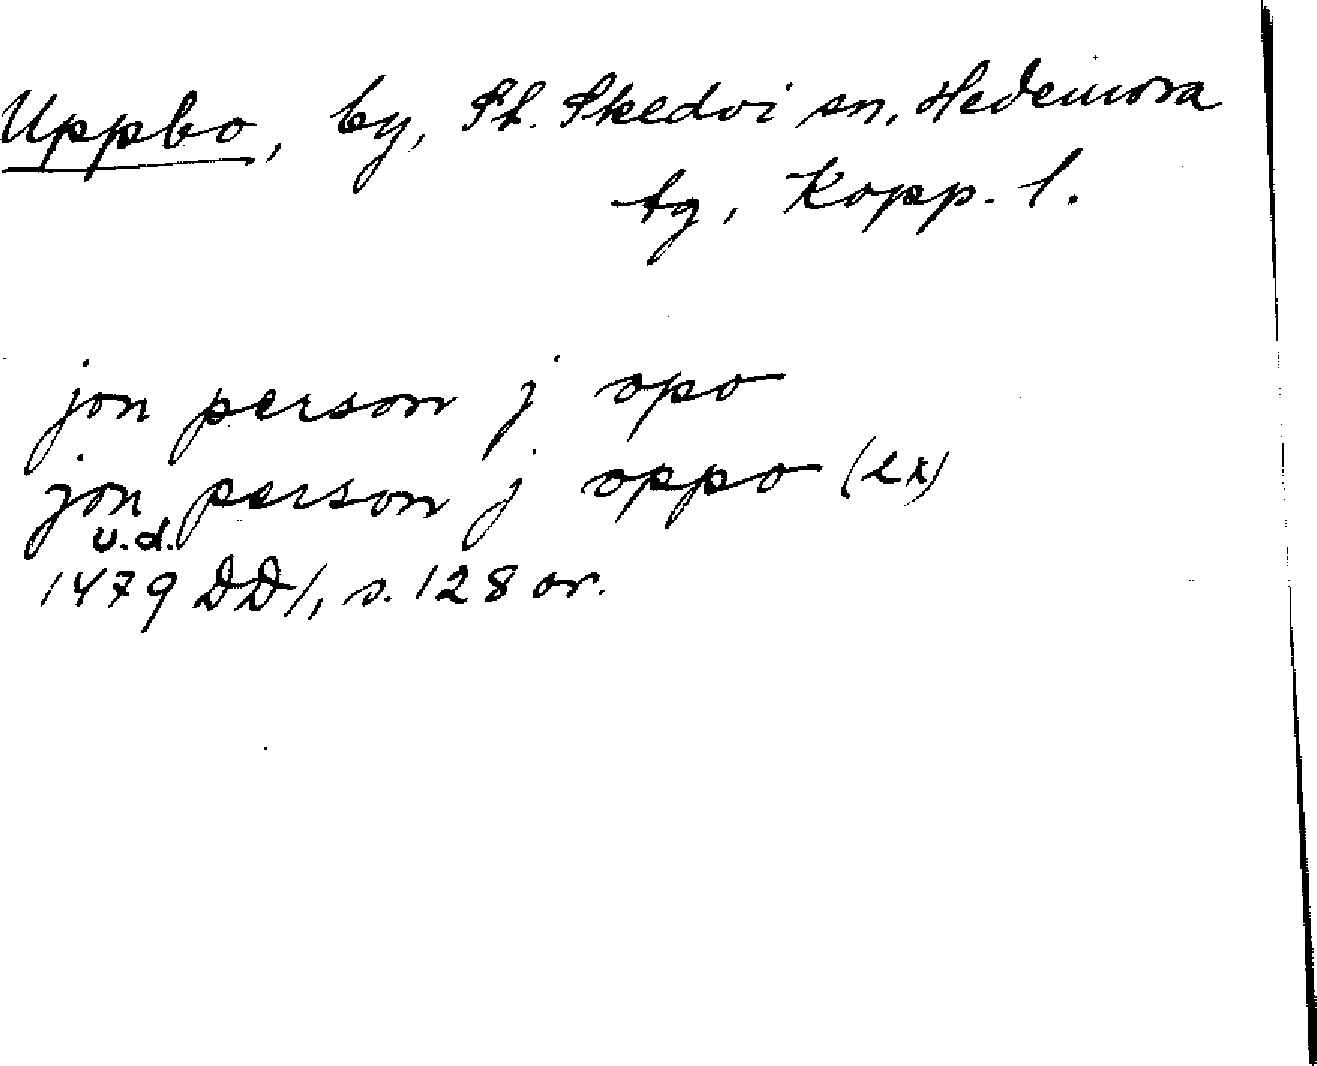 Uppbo, by, St. Skedvi sn, Hedemora
tg, Kopp. l.
jon person j opo
jon person j oppo (2x)
u.d.
1479 DD1, s. 128 or.